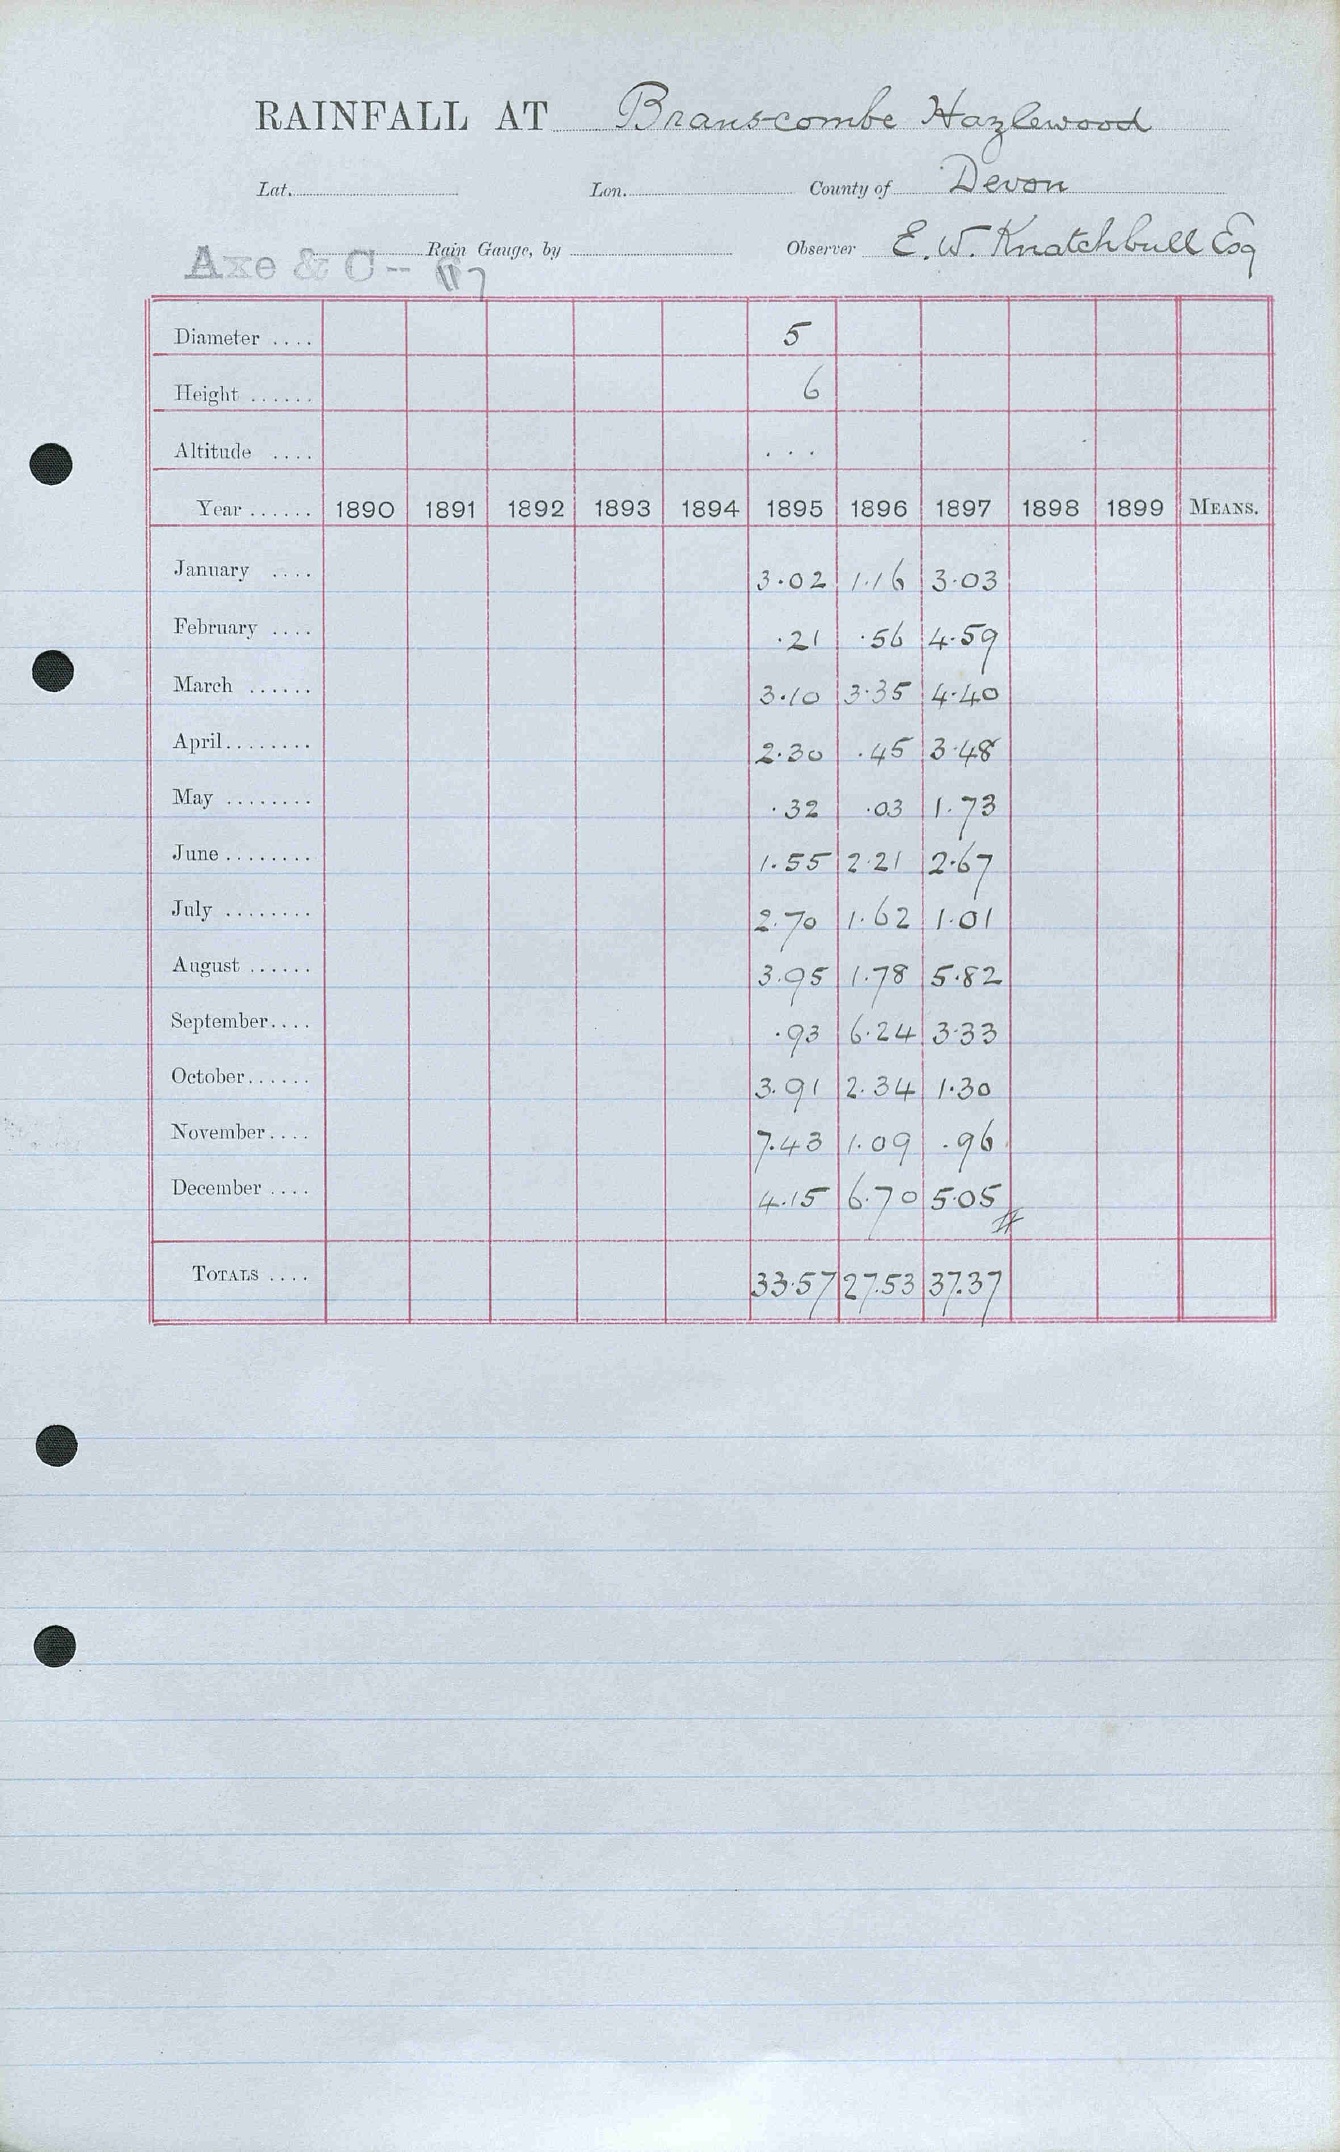 RAINFALL AT Branscombe Hazlewood
Lat. Lon. County of Devon
Axe & C - Rain Gauge, by Observer E. W. Knatchbull Esq
Diameter .... 5
Height ...... 6
Altitude .... ...
Year ...... 1890 1891 1892 1893 1894 1895 1896 1897 1898 1899 MEANS.
January .... 3.02 1.16 3.03
February .... .21 .56 4.59
March ...... 3.10 3.35 4.40
April........ 2.30 .45 3.48
May ........ .32 .03 1.73
June ........ 1.55 2.21 2.67
July ........ 2.70 1.62 1.01
August ...... 3.95 1.78 5.82
September.... .93 6.24 3.33
October...... 3.91 2.34 1.30
November.... 7.43 1.09 .96
December .... 4.15 6.70 5.05
TOTALS .... 33.57 27.53 37.37